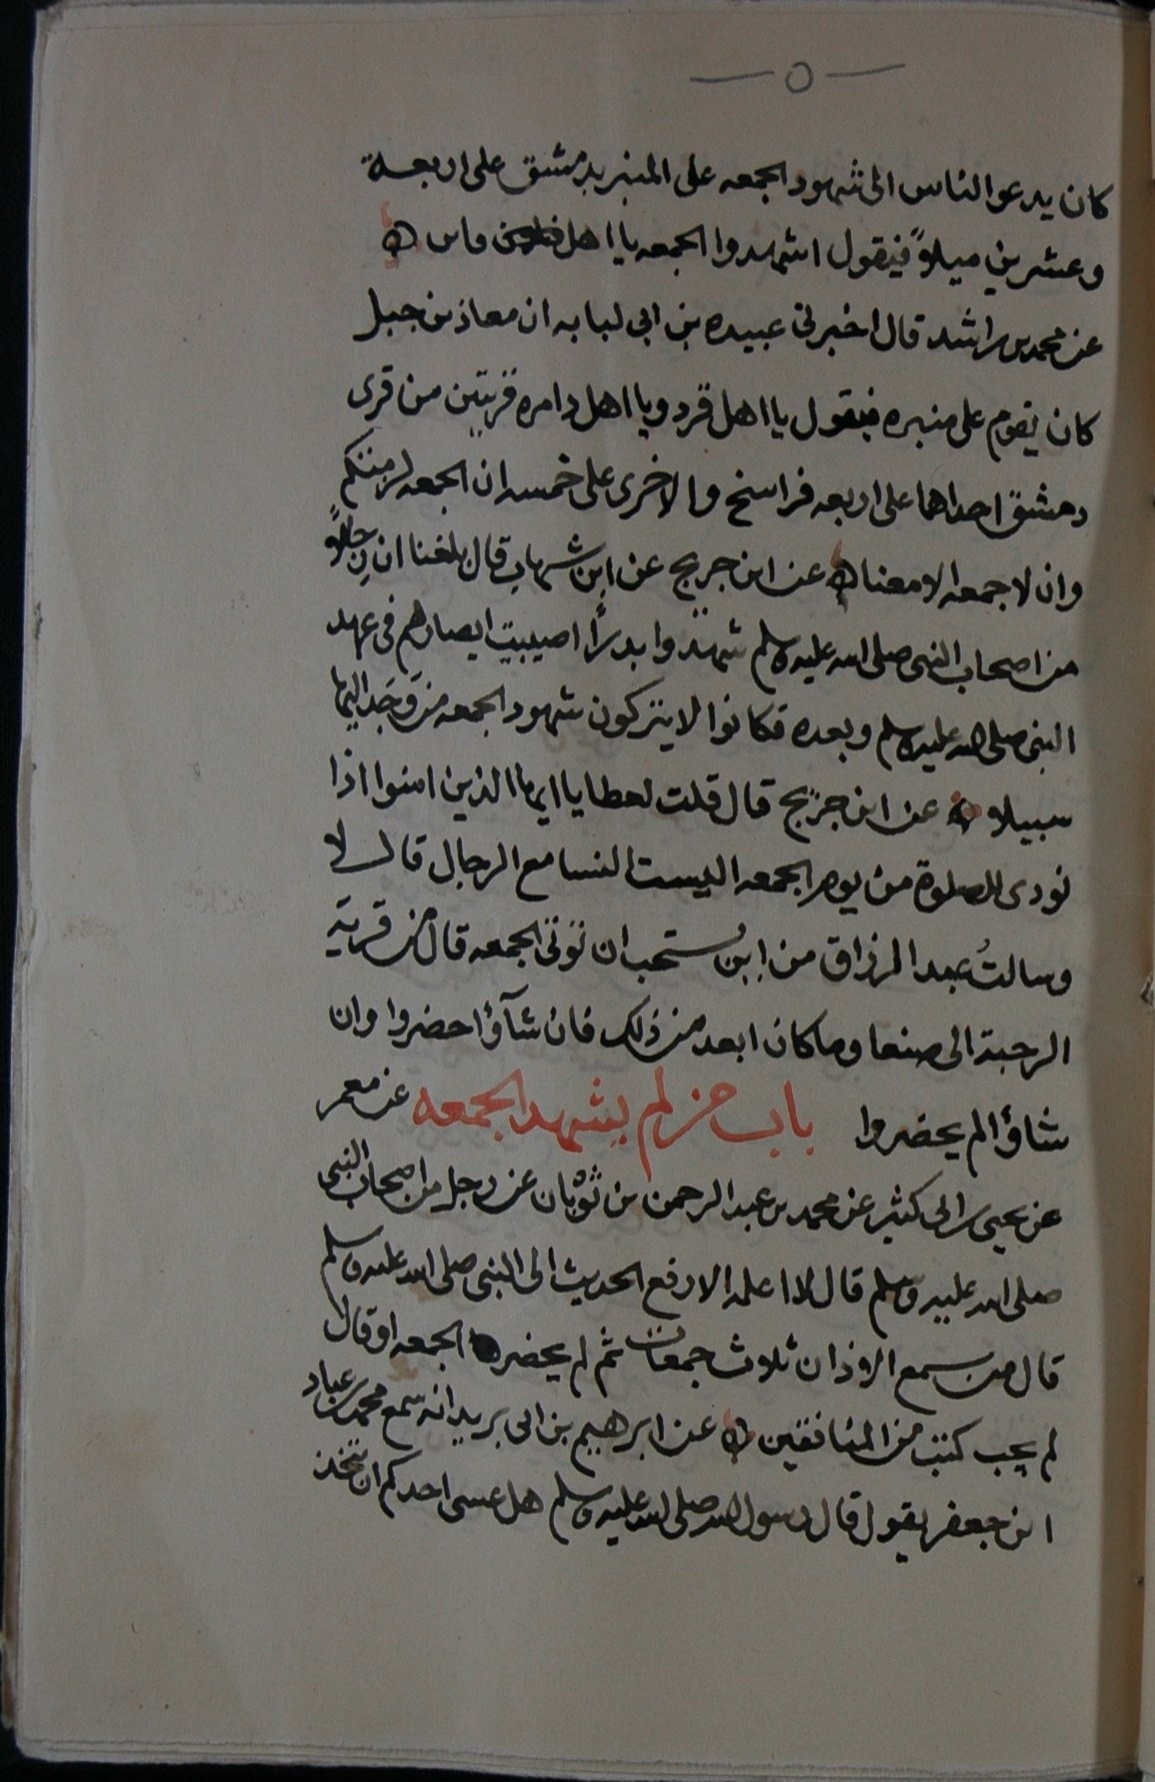 — ٥ —
كان يدعوا الناس الى شهود الجمعه على المنبر بدمشق على اربعة
وعشرين ميلاً فيقول اشهدوا الجمعه يا اهل
عن محمد بن راشد قال اخبرنى عبيده بن ابى لبابه ان معاذ بن جبل
كان يقوم على منبره فيقول يا اهل قرد ويا اهل دامره قريتين من قرى
دمشق احداهما على اربعه فراسخ والاخرى على خمسه ان الجمعه لزمتكم
وان لا جمعه الا معنا ه عن ابن جريج عن ابن شهاب قال بلغنا ان رجالاً
من اصحاب النبى صلى الله عليه وسلم شهدوا بدراً اصيبت ابصارهم فى عهد
النبى صلى الله عليه وسلم وبعده فكانوا لا يتركون شهود الجمعه من وجد اليها
سبيلا ه عن ابن جريج قال قلت لعطا يا ايها الذين امنوا اذا
نودى للصلوة من يوم الجمعه اليست النسا مع الرجال قال لا
وسالتُ عبد الرزاق من اين يُستحب ان تؤتى الجمعه قال من قرية
الرحبة الى صنعا وما كان ابعد من ذلك فان شآؤا حضروا وان
شاؤا لم يحضروا باب من لم يشهد الجمعه عن معمر
عن يحيى بن ابى كثير عن محمد بن عبد الرحمن بن ثوبان عن رجل من اصحاب النبى
صلى الله عليه وسلم قال لا اعلمه الا رفع الحديث الى النبى صلى الله عليه وسلم
قال من سمع الاذان ثلاث جمعات ثم لم يحضر الجمعه او قال
لم يجب كتب من المنافقين ه عن ابرهيم بن ابى يزيد انه سمع محمد بن عباد
ابن جعفر يقول قال رسول الله صلى الله عليه وسلم هل عسى احدكم ان يتخذ